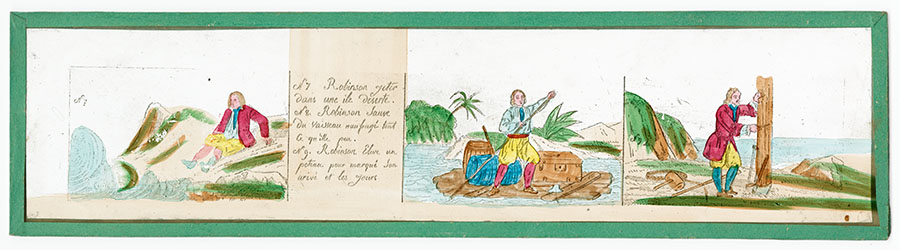 Nº 7
Nº 7 Robinson jeter
dans une ile déserte.
Nº 8. Robinson Sauve
du vaisseau naufragé tout
ce qu'ille peu.
Nº 9. Robinson Elève un
poteau pour marqué Son
arivé et les jours